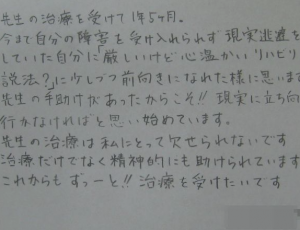 先生の治療を受けて1年5ヶ月。
今まで自分の障害を受け入れられず現実逃避を
していた自分に「厳しいけど心温かいリハビリ
説法?」に少しづつ前向きになれた様に思います
先生の手助けがあったからこそ!!現実に立ち向
行かなければと思い始めています。
先生の治療は私にとって欠せられないです
治療だけでなく精神的にも助けられています
これからもずっーと!!治療を受けたいです